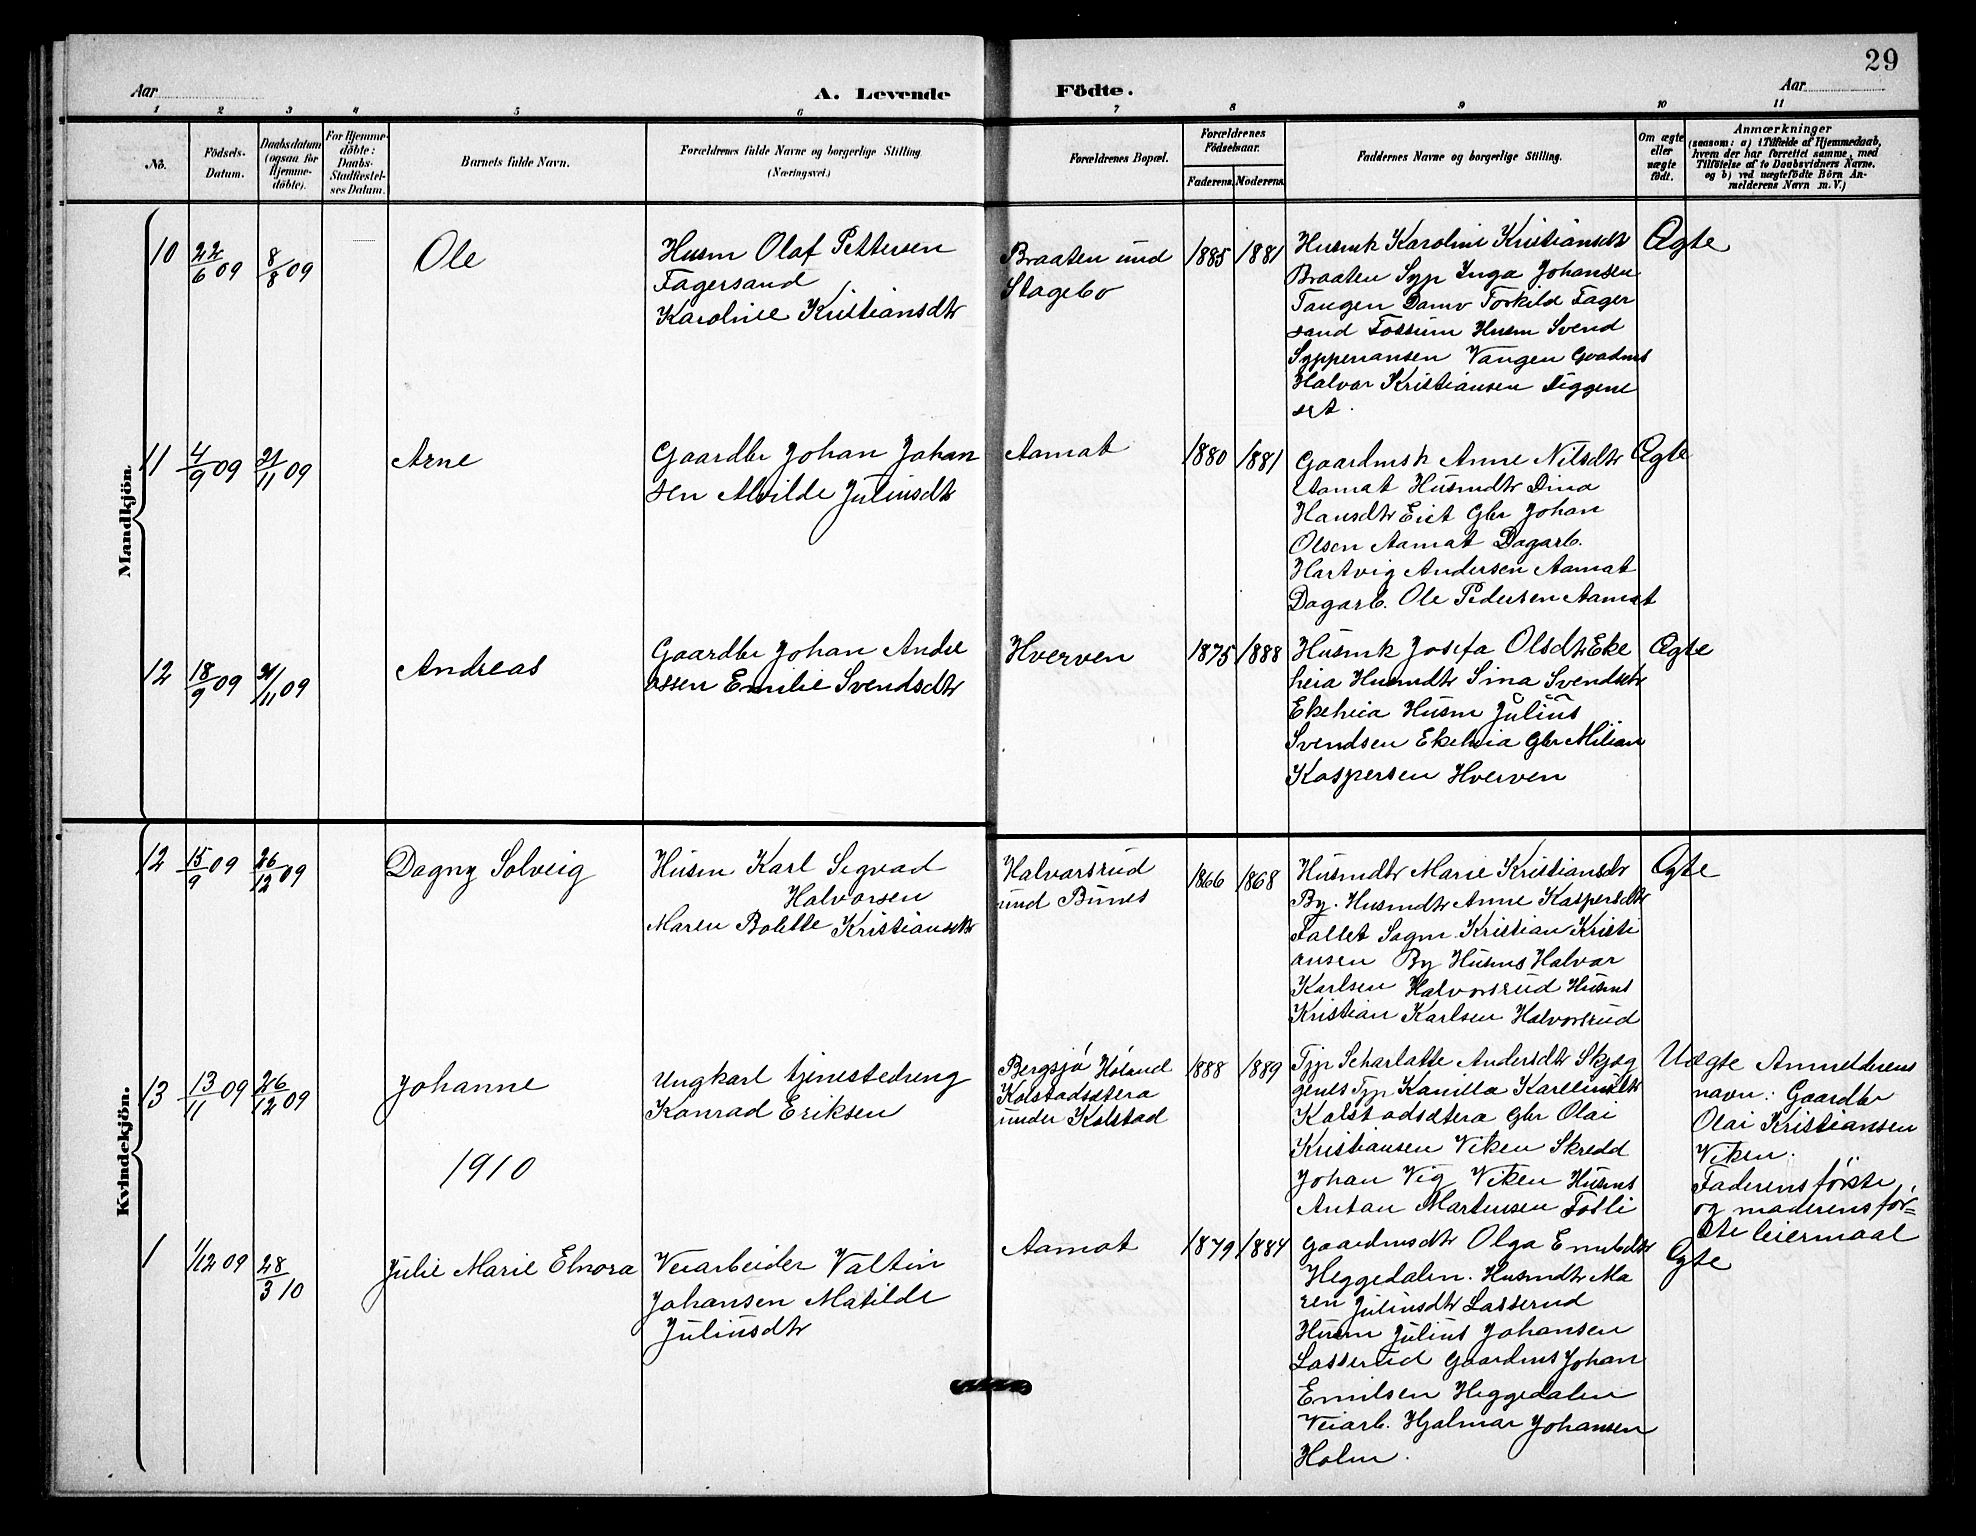 29
Aar
A. Levende
Födte.
Aar
1 2 3 4 5 6 7 8 9 10 11
No.
Födsels-
Datum.
Daabsdatum
(ogsaa for
Hjemme-
döbte).
For Hjemme-
döbte:
Daabs-
Stadfæstel-
ses Datum.
Barnets fulde Navn.
Forældrenes fulde Navne og borgerlige Stilling.
(Næringsvei.)
Forældrenes Bopæl.
Forældrenes
Födselsaar.
Faderens. Moderens.
Faddernes Navne og borgerlige Stilling.
Om ægte
eller
uægte
födt.
Anmærkninger
(saasom: a) i Tilfælde af Hjemmedaab,
hvem der har forrettet samme, med
Tilföielse af to Daabsvidners Navne.
og b) ved uægtefödte Börn An-
melderens Navn m. V.)
Mandkjön.
10
22/6 09
8/8 09
Ole
Husm Olaf Pettersen
Fagersand
Karoline Kristiansdtr
Braaten und
Stagebo
1885 1881
Husmk Karoline Kristiansdtr
Braaten Syp Inga Johansen
Tangen Damv Torkild Fager
sand Fossum Husm Svend
Syppenansen Vangen Gaadms
Halvor Kristiansen Tiggene
set.
Ægte
11
4/9 09
21/11 09
Arne
Gaardbr Johan Johan
sen Alvilde Juliusdtr
Aamot
1880 1881
Gaardmsk Anne Nilsdtr
Aamat Husmdtr Dina
Hansdtr Eiet Gbr Johan
Olsen Aamat Dagarb.
Hartvig Andersen Aamat
Dagarb. Ole Pedersen Aamat
Ægte
12
18/9 09
21/11 09
Andreas
Gaardbr Johan Andre
assen Emilie Svendsdtr
Hverven
1875 1888
Husmk Josefa Olsdtr Eke
heia Husmdtr Sina Svendsdtr
Ekeheia Husm Julius
Svendsen Ekeheia Gbr Milian
Kaspersen Hverven
Ægte
Kvindekjön.
12
15/9 09
26/12 09
Dagny Solveig
Husm Karl Sigvad
Halvorsen
Maren Bolette Kristiansdtr
Halvorsrud
und Bunes
1866 1868
Husmdtr Marie Kristiansdtr
By. Husmdtr Anne Kaspersdtr
Fallet Sagm Kristian Kristi
ansen By Husms Halvar
Karlsen Halvorsrud Husms
Kristian Karlsen Halvorsrud
Ægte
13
13/11 09
26/12 09
Johanne
Ungkarl tjenestedreng
Konrad Eriksen
Bergsjø Høland
Kolstadsætera
under Kolstad
1888 1889
Tjp Scharlatte Andersdtr Skjæg
genes Tjp Kamilla Karelius dtr
Kolstadsætera Gbr Olai
Kristiansen Viken Skredd
Johan Vig Viken Husms
Anton Martinsen Tolli
Uægte Anmelderens
navn: Gaardbr
Olai Kristiansen
Viken.
Faderens første
og moderens før=
ste leiermaal
1910
1
1/12 09
28/3 10
Julie Marie Elnora
Veiarbeider Valtin
Johansen Matilde
Juliusdtr
Aamot
1879 1884
Gaardmsdtr Olga Emilsdtr
Heggedalen. Husmdtr Ma
ren Juliusdtr Lasserud
Husm Julius Johansen
Lasserud Gaardms Johan
Emilsen Heggedalen
Veiarb. Hjalmar Johansen
Holm.
Ægte